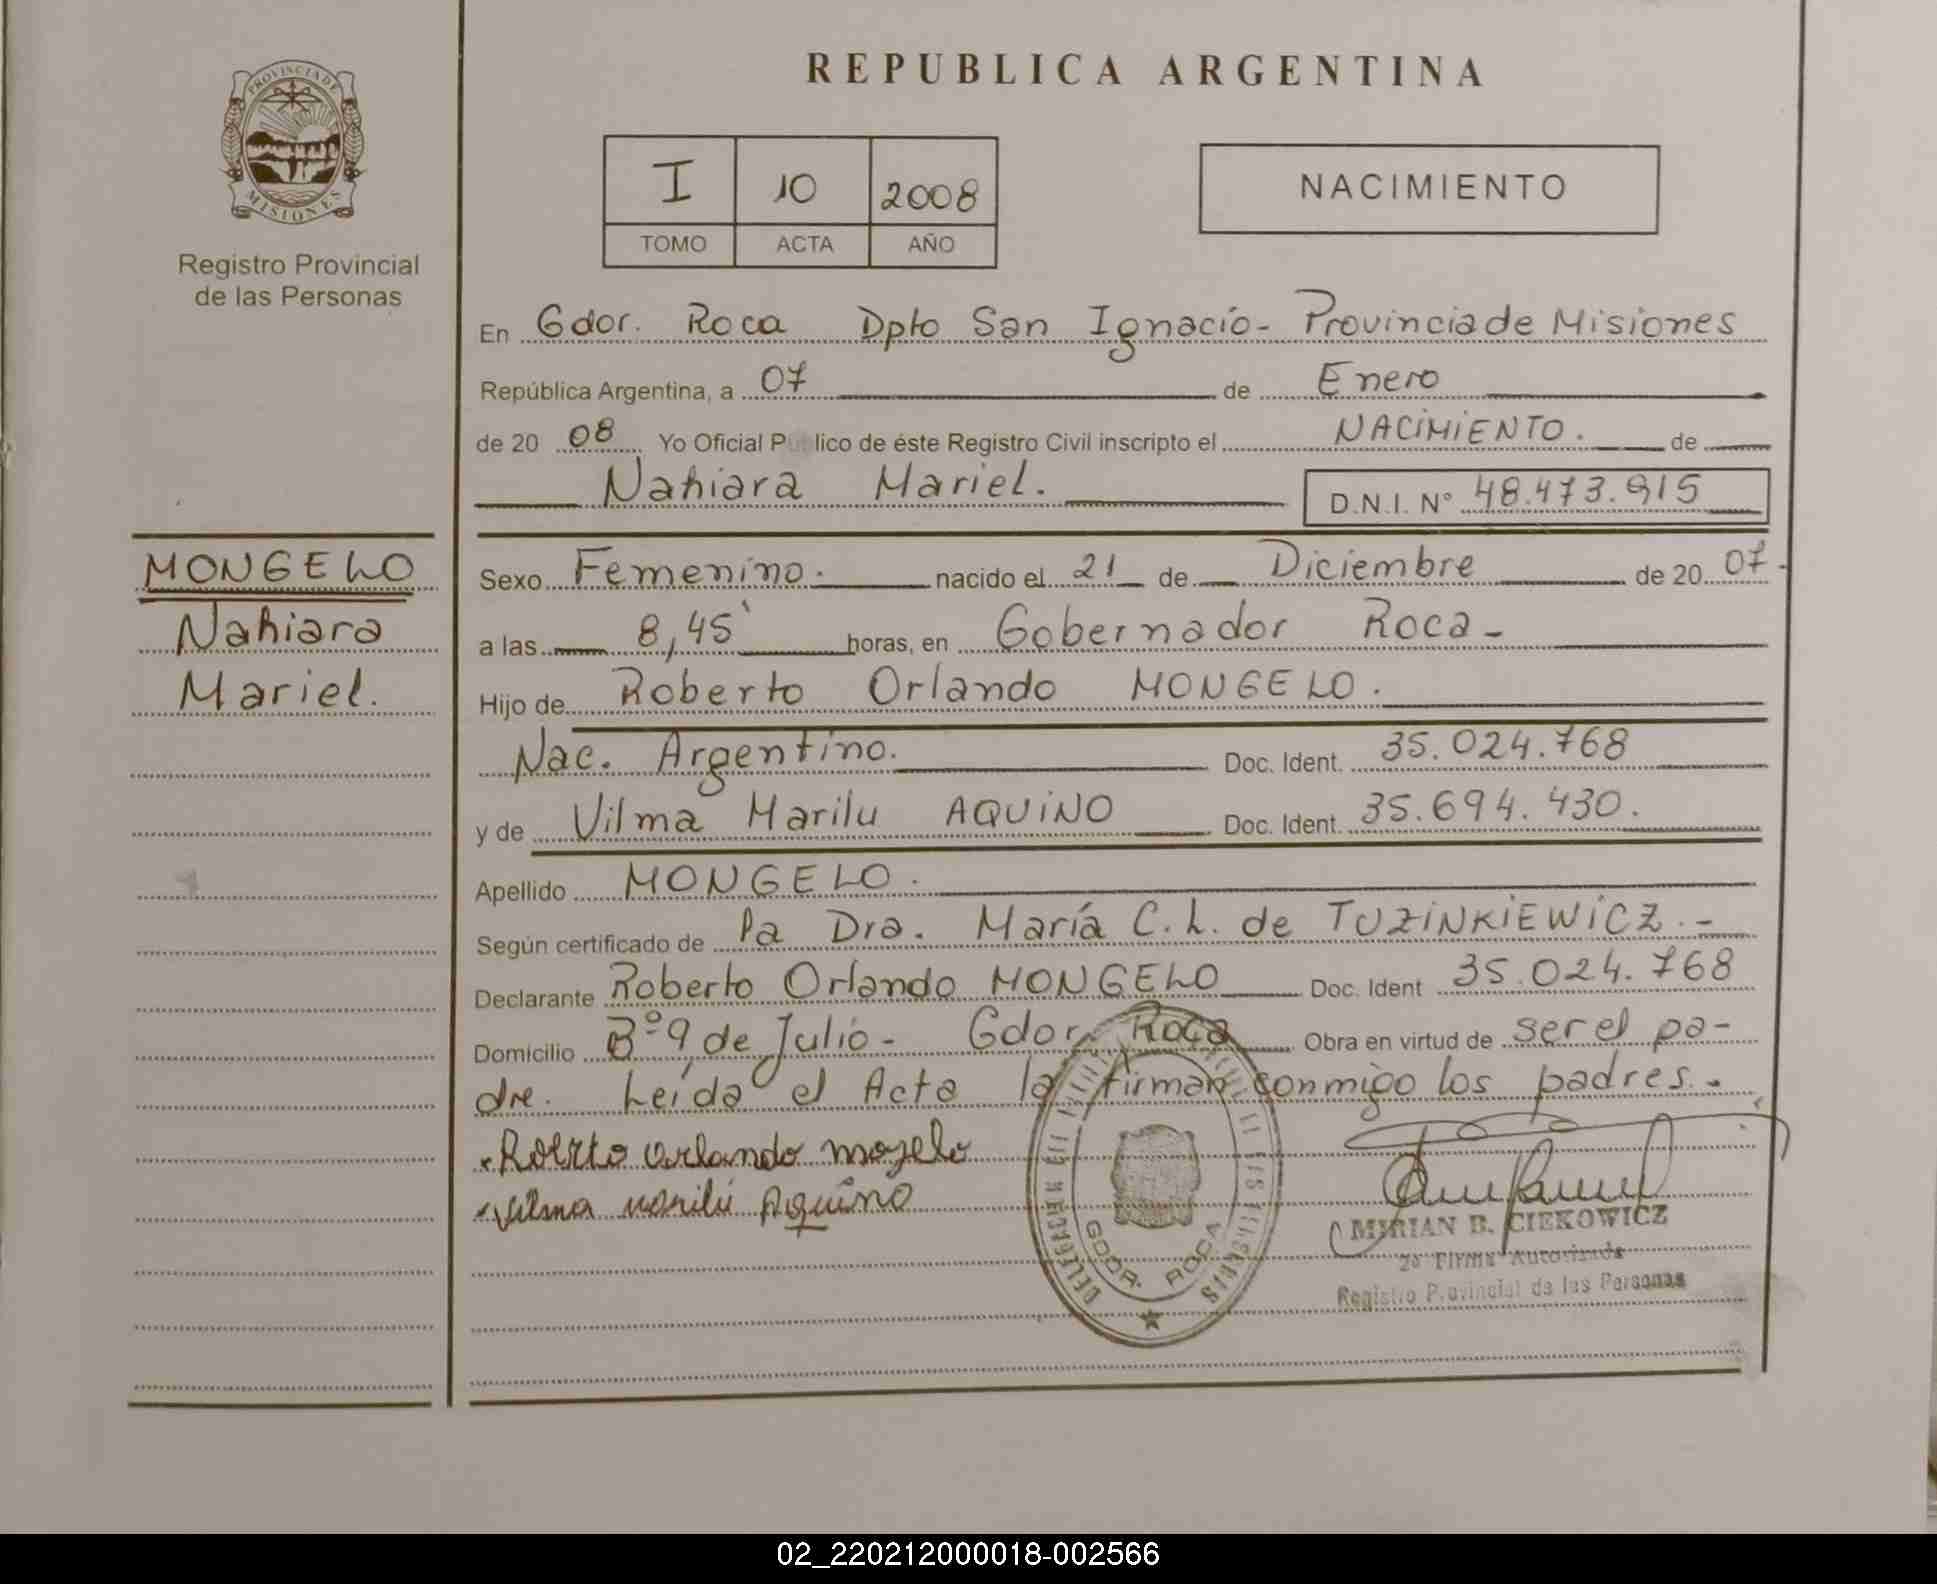 REPUBLICA ARGENTINA
PROVINCIA DE
MISIONES
Registro Provincial
de las Personas
I 10 2008
TOMO ACTA AÑO
NACIMIENTO
En Gdor. Roca Dpto San Ignacio - Provincia de Misiones
República Argentina, a 07 de Enero
de 20 08 Yo Oficial Público de éste Registro Civil inscripto el NACIMIENTO. de
Nahiara Mariel. D.N.I. N° 48.473.915
MONGELO
Nahiara
Mariel.
Sexo Femenino. nacido el 21 de Diciembre de 20 07.
a las 8,45' horas, en Gobernador Roca -
Hijo de Roberto Orlando MONGELO.
Nac. Argentino. Doc. Ident. 35.024.768
y de Vilma Marilu AQUINO Doc. Ident. 35.694.430.
Apellido MONGELO.
Según certificado de la Dra. María C. L. de TUZINKIEWICZ. -
Declarante Roberto Orlando MONGELO Doc. Ident 35.024.768
Domicilio B° 9 de Julio - Gdor. Roca Obra en virtud de ser el pa-
dre. Leída el Acta la firman conmigo los padres. -
Roberto orlando mogelo
Vilma marilú Aquino
GDOR. ROCA
MIRIAN B. CIEKOWICZ
2ª Firma Autorizada
Registro Provincial de las Personas
02_220212000018-002566